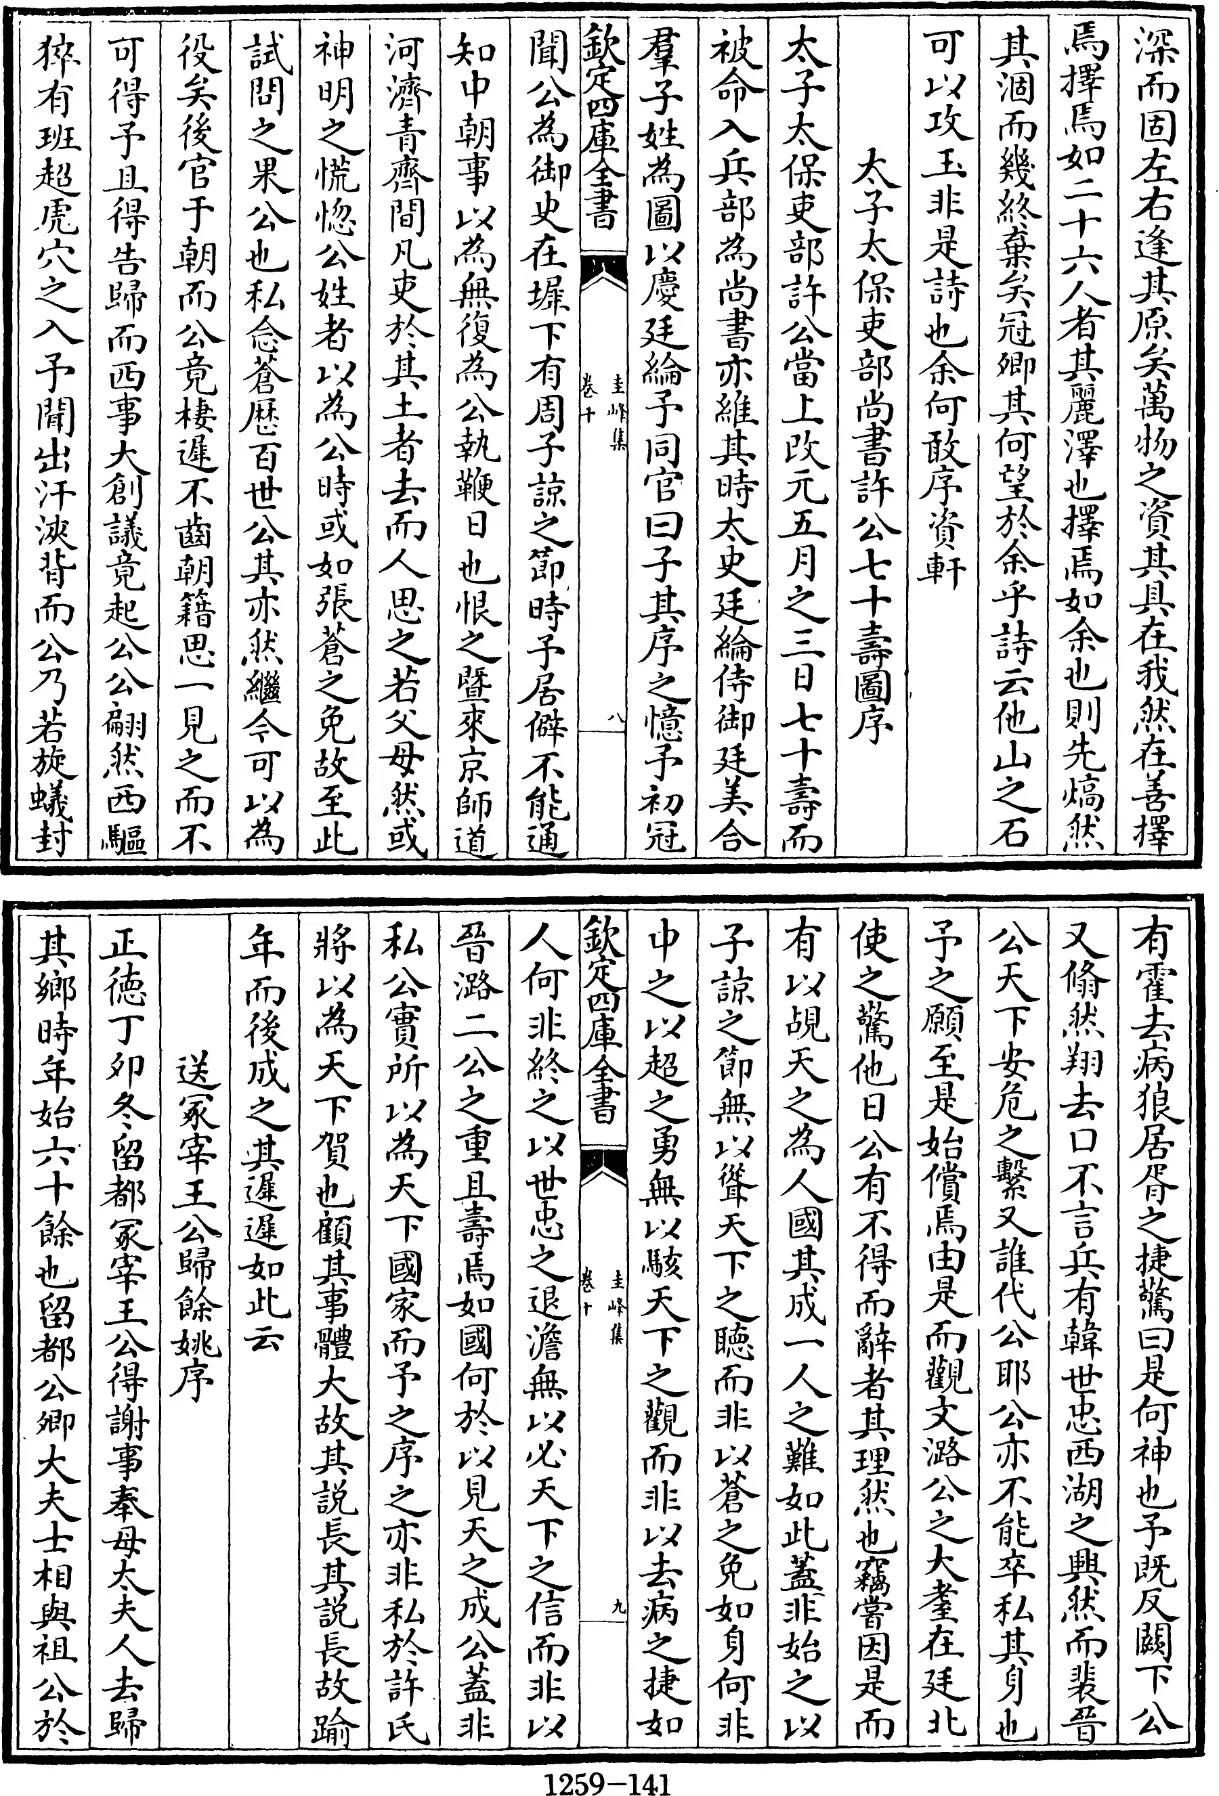 深而固左右逢其原矣萬物之資其具在我然在善擇
焉擇焉如二十六人者其麗澤也擇焉如余也則先熇然
其涸而幾終棄矣冠卿其何望於余乎詩云他山之石
可以攻玉非是詩也余何敢序資軒
太子太保吏部尚書許公七十壽圖序
太子太保吏部許公當上改元五月之三日七十壽而
被命入兵部為尚書亦維其時太史廷綸侍御廷美合
羣子姓為圖以慶廷綸予同官曰子其序之憶予初冠
欽定四庫全書
圭峰集
卷十
八
聞公為御史在墀下有周子諒之節時予居僻不能通
知中朝事以為無復為公執鞭日也恨之暨來京師道
河濟青齊間凡吏於其土者去而人思之若父母然或
神明之慌惚公姓者以為公時或如張蒼之免故至此
試問之果公也私念蒼歴百世公其亦然繼今可以為
役矣後官于朝而公竟棲遲不齒朝籍思一見之而不
可得予且得告歸而西事大創議竟起公公翩然西驅
猝有班超虎穴之入予聞出汗浹背而公乃若旋蟻封
有霍去病狼居胥之捷驚曰是何神也予既反闕下公
又翛然翔去口不言兵有韓世忠西湖之興然而裴晉
公天下安危之繫又誰代公耶公亦不能卒私其身也
予之願至是始償焉由是而觀文潞公之大耋在廷北
使之驚他日公有不得而辭者其理然也竊嘗因是而
有以覘天之為人國其成一人之難如此蓋非始之以
子諒之節無以聳天下之聽而非以蒼之免如身何非
中之以超之勇無以駭天下之觀而非以去病之捷如
欽定四庫全書
圭峰集
卷十
九
人何非終之以世忠之退澹無以必天下之信而非以
晉潞二公之重且壽焉如國何於以見天之成公蓋非
私公實所以為天下國家而予之序之亦非私於許氏
將以為天下賀也顧其事體大故其説長其説長故踰
年而後成之其遲遲如此云
送冢宰王公歸餘姚序
正德丁卯冬留都冢宰王公得謝事奉母太夫人去歸
其鄉時年始六十餘也留都公卿大夫士相與祖公於
1259-141